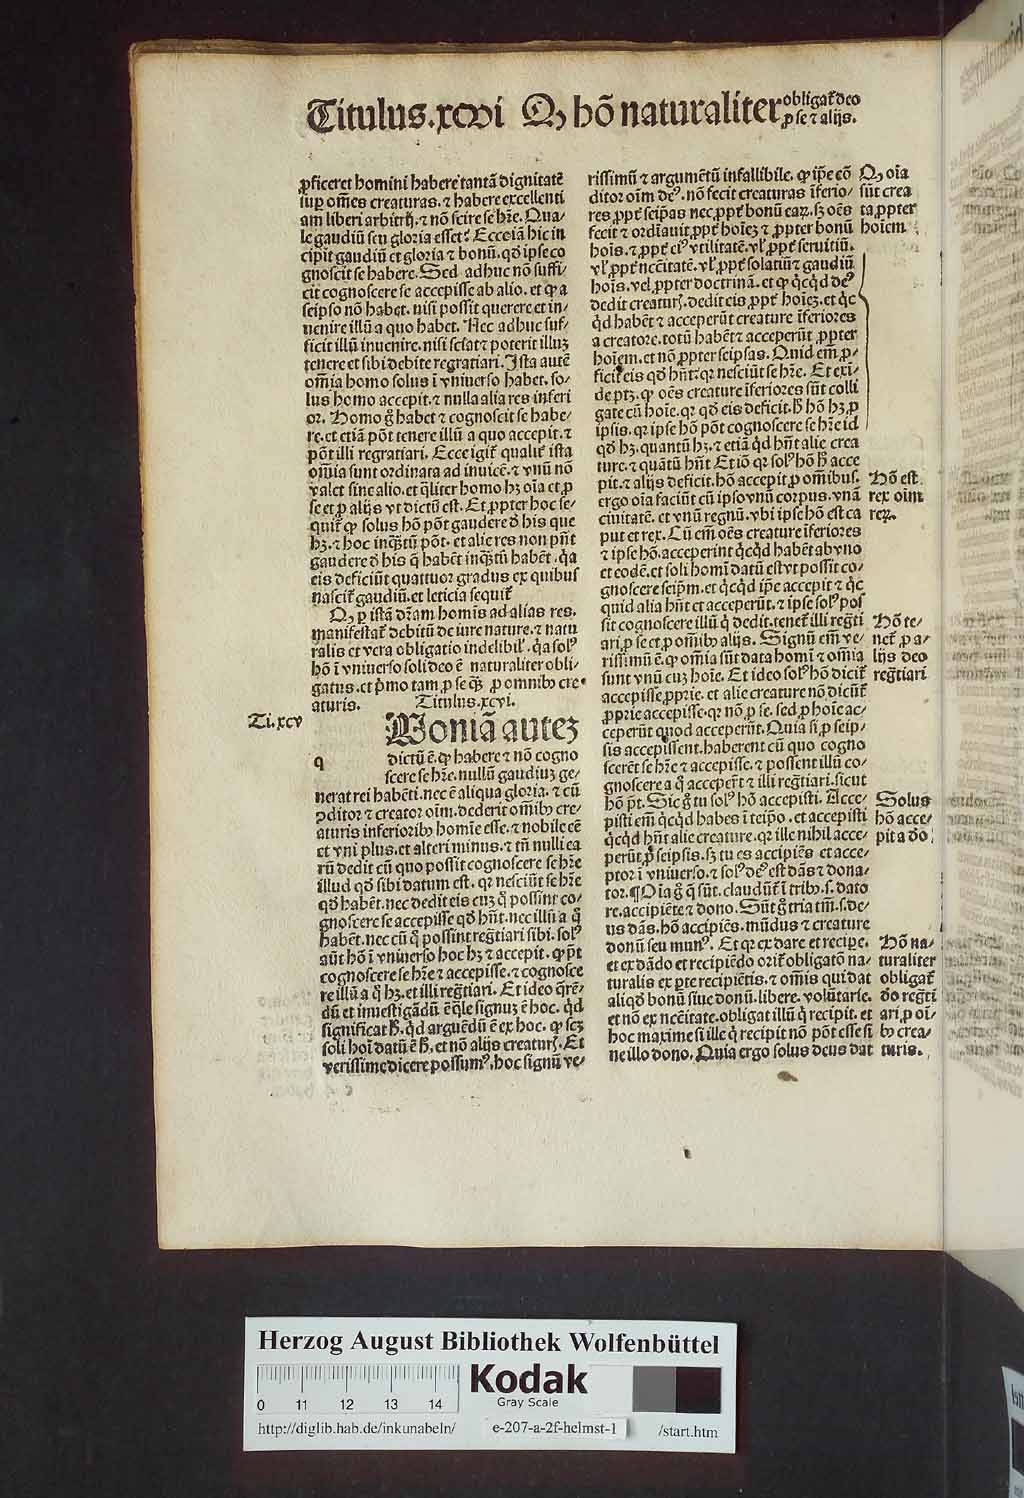 Titulus.xcvi Qꝫ hõ naturaliter obligat᷑ deo
ꝓ se ⁊ alijs.
ꝓficeret homini habere tantã dignitatẽ
suꝑ om̃es creaturas.⁊ habere excellenti
am liberi arbitrij.⁊ nõ scire se hr̃e. Qua-
le gaudiũ seu gloria esset? Ecce iã hic in
cipit gaudiũ et gloria ⁊ bonũ.qð ipse co
gnoscit se habere. Sed adhuc nõ suffi-
cit cognoscere se accepisse ab alio. et ꝙ a
seipso nõ habet. nisi possit querere et in-
uenire illũ a quo habet. Nec adhuc suf-
ficit illũ inuenire. nisi sciat ⁊ poterit illuꝫ
tenere et sibi debite regratiari. Ista autẽ
om̃ia homo solus ĩ vniuerso habet. so-
lus homo accepit.⁊ nulla alia res inferi
or. Homo g̊ habet ⁊ cognoscit se habe-
re.et etiã põt tenere illũ a quo accepit.⁊
põt illi regratiari. Ecce igit᷑ qualit᷑ ista
om̃ia sunt ordinata ad inuicẽ.⁊ vnũ nõ
valet sine alio.et q̃liter homo hꝫ oĩa et ꝓ
se et ꝓ alijs vt dictũ est. Et ꝓpter hoc se-
quit᷑ ꝙ solus hõ põt gaudere ð his que
hꝫ.⁊ hoc inq̃tũ põt. et alie res non pñt
gaudere ð his q̃ habẽt inq̃tũ habẽt.q̃a
eis deficiũt quattuor gradus ex quibus
nascit᷑ gaudiũ.et leticia sequit᷑
Qꝫ ꝑ istã dr̃am hominis ad alias res.
manifestat᷑ debitũ de iure nature.⁊ natu
ralis et vera obligatio indelibil᷑.q̃a solꝰ
hõ ĩ vniuerso soli deo ẽ naturaliter obli-
gatus.et p̃mo tam ꝓ se q̃ꝫ ꝓ omnibꝰ cre-
aturis. Titulus.xcvi.
Ti.xcv
q
Woniã auteꝫ
dictũ ẽ ꝙ habere ⁊ nõ cogno
scere se hr̃e. nullũ gaudiuꝫ ge-
nerat rei habẽti.nec ẽ aliqua gloria.⁊ cũ
ꝯditor ⁊ creator oĩm.dederit om̃ibꝰ cre-
aturis inferioribꝰ homĩe esse.⁊ nobile eẽ
et vni plus.et alteri minus.⁊ tñ nulli ea
rũ dedit cũ quo possit cognoscere se hr̃e
illud qð sibi datum est. qr nesciũt se hr̃e
qð habẽt.nec dedit eis cuꝫ q̊ possint co-
gnoscere se accepisse qð hñt.nec illũ a q̊
habẽt.nec cũ q̊ possint reg̃tiari sibi.solꝰ
aũt hõ ĩ vniuerso hoc hꝫ ⁊ accepit.ꝙ p̃t
cognoscere se hr̃e ⁊ accepisse.⁊ cognosce
re illũ a q̊ hꝫ.et illi reg̃tiari. Et ideo q̃rẽ-
dũ et inuestigãdũ ẽ q̃le signuꝫ ẽ hoc.q̊d
significat h̃.q̊d arguẽdũ ẽ ex hoc. ꝙ scꝫ
soli hoĩ datũ ẽ h̃.et nõ alijs creatur̃. Et
verissime dicere possumꝰ.hoc signũ ve-
rissimũ ⁊ argumẽtũ infallibile. ꝙ ip̃e cõ
ditor oĩm deꝰ.nõ fecit creaturas ĩferio-
res ꝓpt᷑ seip̃as nec ꝓpt᷑ bonũ earꝫ.sꝫ oẽs
fecit ⁊ ordĩauit ꝓpt᷑ hoĩeꝫ ⁊ ꝓpter bonũ
hoĩs.⁊ ꝓpt᷑ eiꝰ vtilitatẽ.vl᷑ ꝓpt᷑ seruitiũ.
vl᷑ ꝓpt᷑ ncc̃itatẽ.vl᷑ ꝓpt᷑ solatiũ ⁊ gaudiũ
hoĩs.vel ꝓpter doctrinã.et ꝙ q̊cq̊d deꝰ
dedit creatur̃.dedit eis ꝓpt᷑ hoĩeꝫ.et q̊c
q̊d habẽt ⁊ acceperũt creature ĩferiores
a creatore.totũ habẽt ⁊ acceperũt ꝓpter
hoĩem.et nõ ꝓpter seipsas. Quid em̃ ꝓ-
ficit eis qð hñt.qr nesciũt se hr̃e. Et exi-
de ptꝫ.ꝙ oẽs creature ĩferiores sũt colli
gate cũ hoĩe.qr qð eis deficit.h̃ hõ hꝫ ꝓ
ipsis.qr ipse hõ põt cognoscere se hr̃e id
qð hꝫ.quantũ hꝫ.⁊ etiã q̊d hñt alie crea
ture.⁊ quãtũ hñt Et iõ qr solꝰ hõ h̃ acce
pit.⁊ alijs deficit.hõ accepit ꝓ om̃ibus.
ergo oĩa faciũt cũ ipso vnũ corpus.vnã
ciuitatẽ.et vnũ regnũ.vbi ipse hõ est ca
put et rex. Cũ em̃ oẽs creature ĩferiores
⁊ ipse hõ.acceperint q̊cq̊d habẽt ab vno
et eodẽ.et soli homĩ datũ est vt possit co-
gnoscere seip̃m.et q̊cq̊d ip̃e accepit ⁊ q̊c
quid alia hñt et acceperũt.⁊ ipse solꝰ pos
sit cognoscere illũ q̊ dedit.tenet᷑ illi reg̃ti
ari.ꝓ se et ꝓ om̃ibꝰ alijs. Signũ em̃ ve-
rissimũ ẽ.ꝙ om̃ia sũt data homĩ ⁊ om̃ia
sunt vnũ cuꝫ hoĩe. Et ideo solꝰ hõ dicit᷑
accepisse ꝓprie.et alie creature nõ dicũt᷑
ꝓprie accepisse.qr nõ ꝓ se. sed ꝓ hoĩe ac-
ceperũt quod acceperũt. Quia si ꝓ seip-
sis accepissent.haberent cũ quo cogno
scerẽt se hr̃e ⁊ accepisse.⁊ possent illũ co-
gnoscere a q̊ acceper̃t ⁊ illi reg̃tiari.sicut
hõ p̃t. Sic g̊ tu solꝰ hõ accepisti. Acce-
pisti em̃ q̊cq̊d habes ĩ teip̃o.et accepisti
q̊cq̊d hñt alie creature.qr ille nihil acce-
perũt ꝓ seipsis.sꝫ tu es accipiẽs et acce-
ptor ĩ vniuerso.⁊ solꝰ deꝰ est dãs ⁊ dona-
tor.¶Oĩa g̊ q̃ sũt.claudũt᷑ ĩ tribꝰ.s.dato
re.accipiẽte ⁊ dono. Sũt g̊ tria tm̃.s.de-
us dãs.hõ accipiẽs.mũdus ⁊ creature
donũ seu munꝰ. Et qr ex dare et recipe.
et ex dãdo et recipiẽdo orit᷑ obligatõ na-
turalis ex ꝑte recipiẽtis.⁊ om̃is qui dat
aliqð bonũ siue donũ.libere.volũtarie.
et nõ ex ncc̃itate.obligat illũ q̊ recipit. et
hoc maxime si ille q̊ recipit nõ põt esse si
ne illo dono. Quia ergo solus deus dat
Qꝫ oĩa
sũt crea
ta ꝓpter
hoĩem
Hõ est
rex oĩm
reꝝ.
Hõ te-
net᷑ ꝓ a-
lijs deo
reg̃tiari
Solus
hõ acce-
pit a ðo
Hõ na-
turaliter
obligat᷑
ðo reg̃ti
ari.ꝓ oĩ-
bꝰ crea-
turis.
Herzog August Bibliothek Wolfenbüttel
0 11 12 13 14
Kodak
Gray Scale
http://diglib.hab.de/inkunabeln/ e-207-a-2f-helmst-1 /start.htm